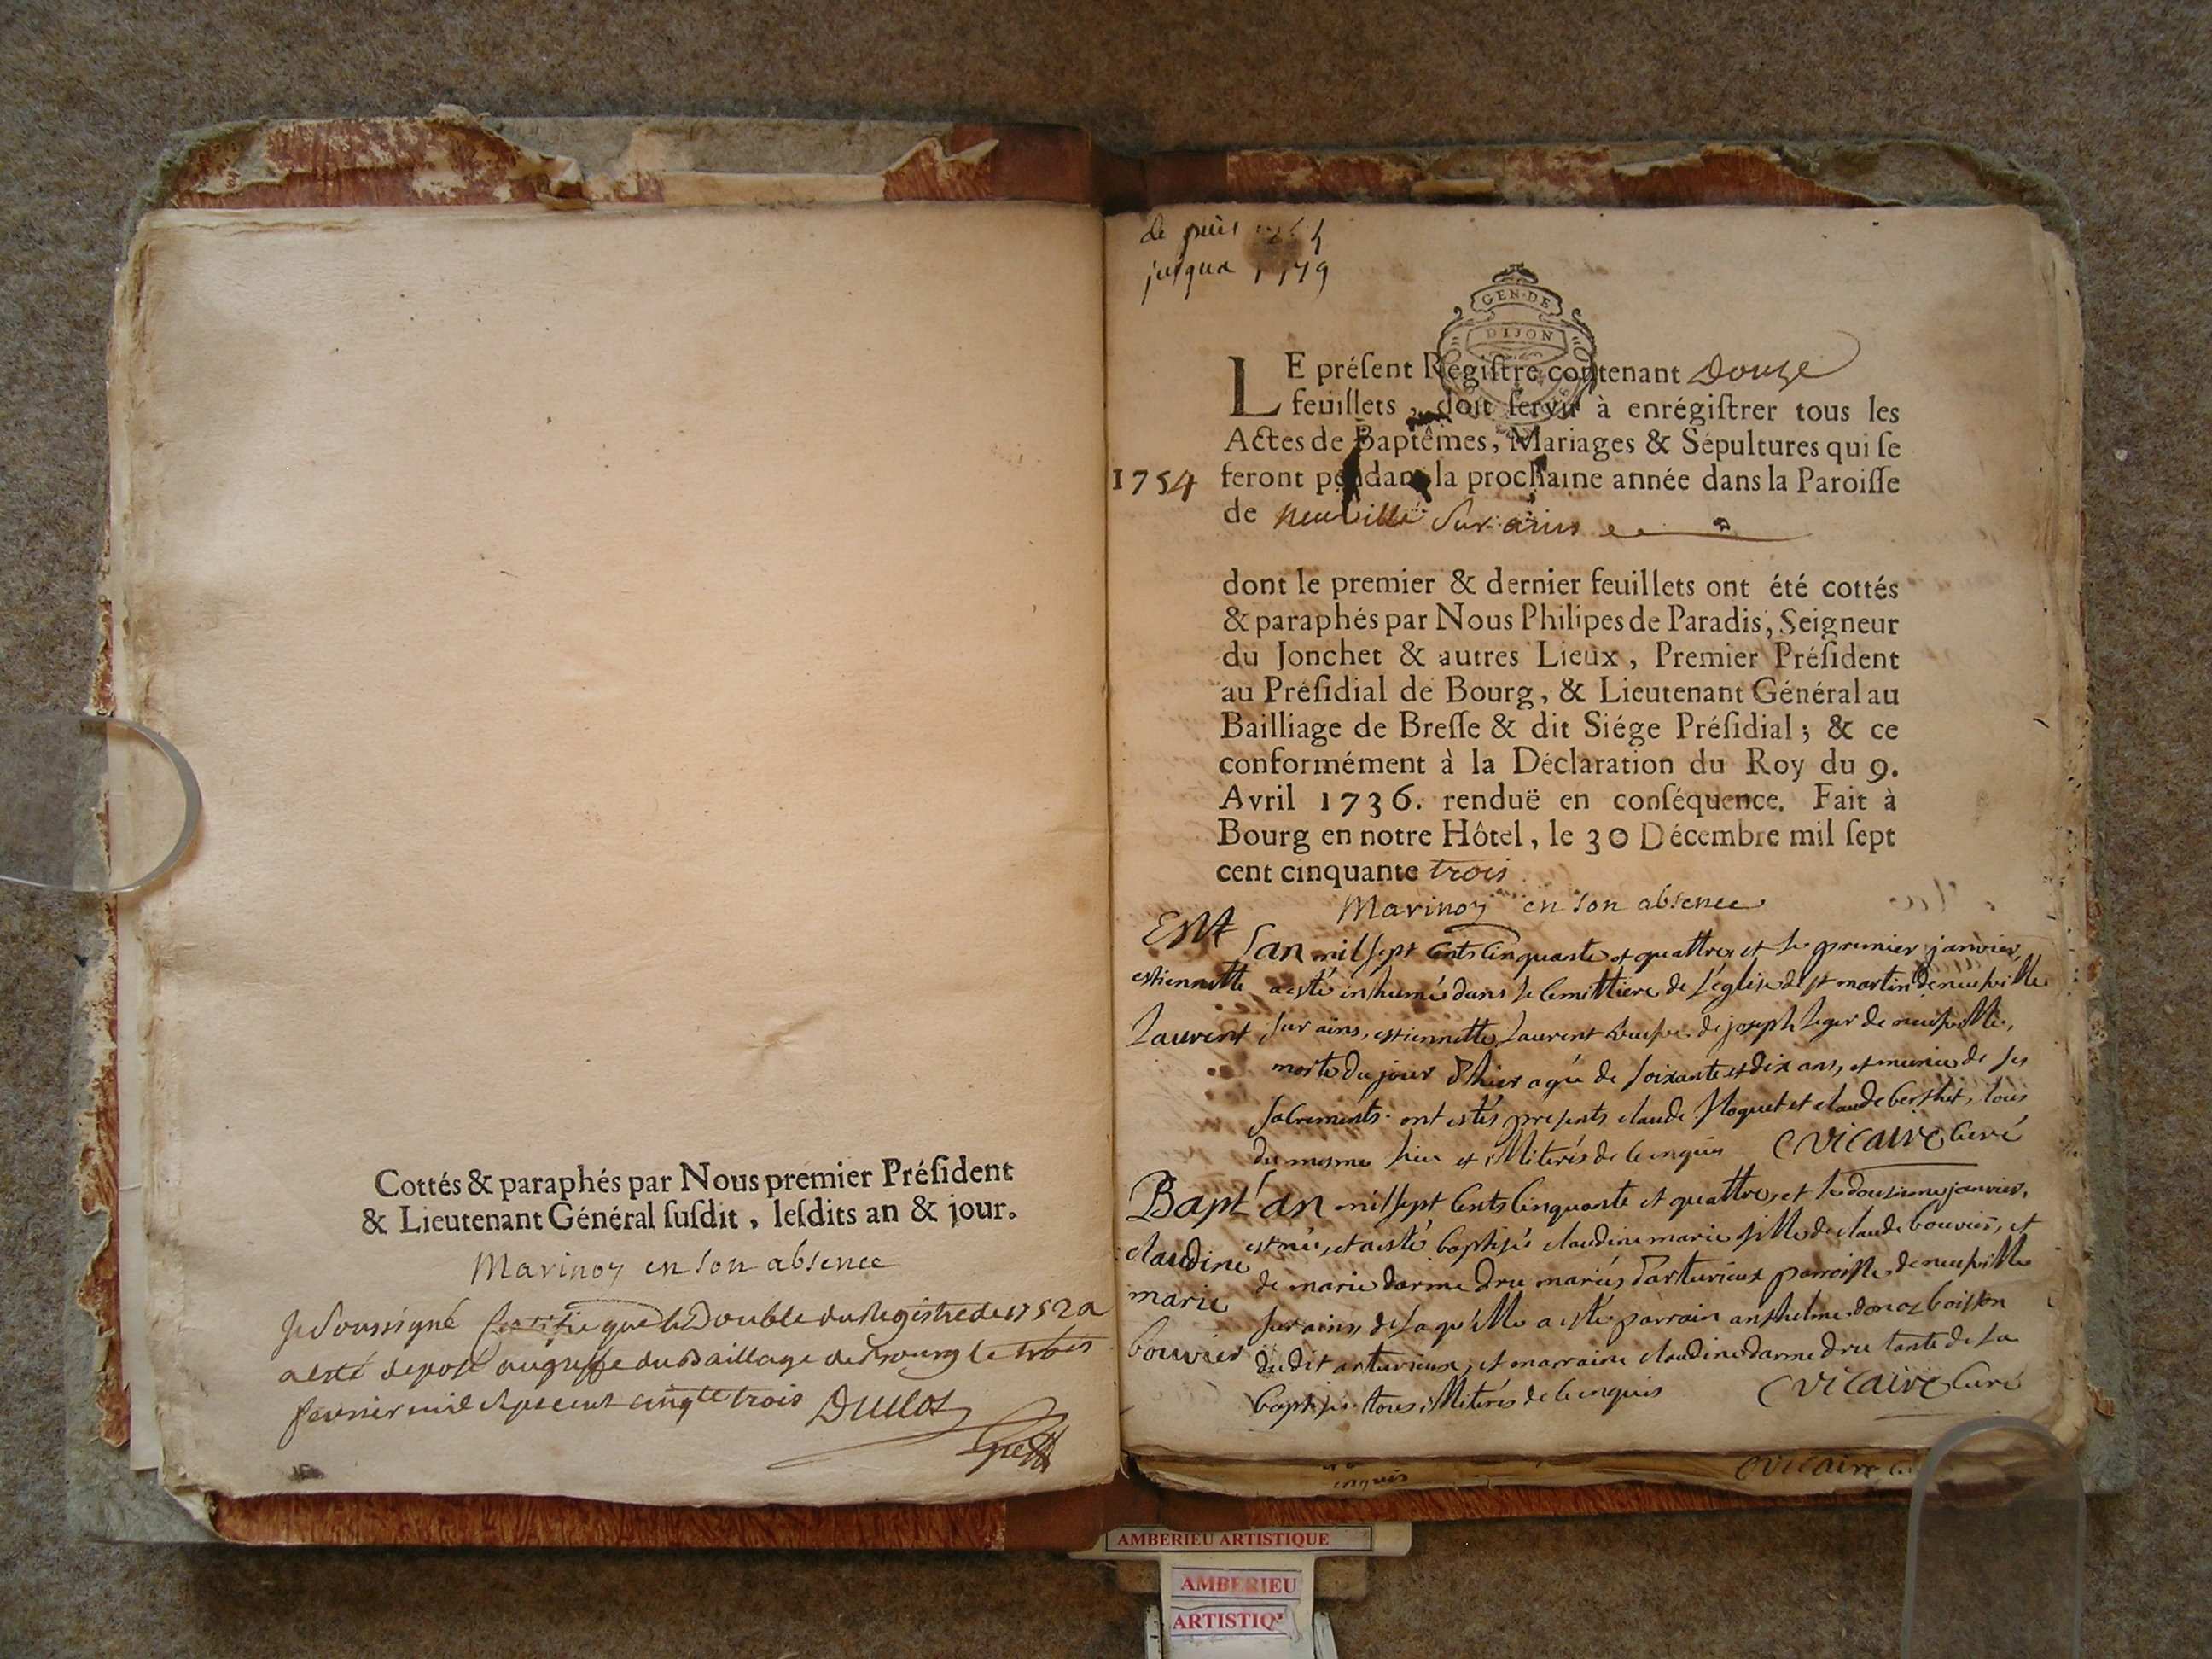 Cottés & paraphés par Nous premier Préſident
& Lieutenant Général ſuſdit, leſdits an & jour.
Marinoz en son absence
Je Soussigné Certifie que le Double du Registre de 1752 a
a esté deposé au greffe du Baillage de Bourg le trois
fevrier mil sept cent cinqte trois Duclos
Greff
de puis
jusqua 1779
GEN·DE
DIJON
LE préſent Regiſtre contenant Douze
feuillets, doit ſervir à enrégiſtrer tous les
Actes de Baptêmes, Mariages & Sépultures qui ſe
1754 feront pendant la prochaine année dans la Paroiſſe
de neuville sur ains
dont le premier & dernier feuillets ont été cottés
& paraphés par Nous Philipes de Paradis, Seigneur
du Jonchet & autres Lieux, Premier Préſident
au Préſidial de Bourg, & Lieutenant Général au
Bailliage de Breſſe & dit Siége Préſidial; & ce
conformément à la Déclaration du Roy du 9.
Avril 1736. renduë en conſéquence. Fait à
Bourg en notre Hôtel, le 30 Décembre mil ſept
cent cinquante trois
Marinoz en son absence
Ent Lan mil sept cents cinquante et quattre, et le premier janvier,
estiennette a esté inhumé dans le cemittiere de l'église de st martin de neufville
Laurent sur ains, estiennette Laurent veufve de joseph leger de neufville,
morte du jour d'hier agée de soixante et dix ans, et munie de ses
sacrements. ont estés presents claude floquet et claude berthet, tous
du mesme lieu et illiterés de ce enquis Vicaire curé
Bapt L'an mil sept cents cinquante et quattre, et le dousieme janvier,
est née, et a esté baptisée claudine marie fille de claude bouvier, et
claudine de marie darmedru mariés d'arturieux parroisse de neufville
marie sur ains, de laquelle a esté parrain anthelme donoz boisson
bouvier dudit arturieux, et marraine claudine darmedru tante de la
baptisée. tous illiterés de ce enquis Vicaire curé
enquis
Vicaire
AMBERIEU ARTISTIQUE
AMBERIEU
ARTISTIQ